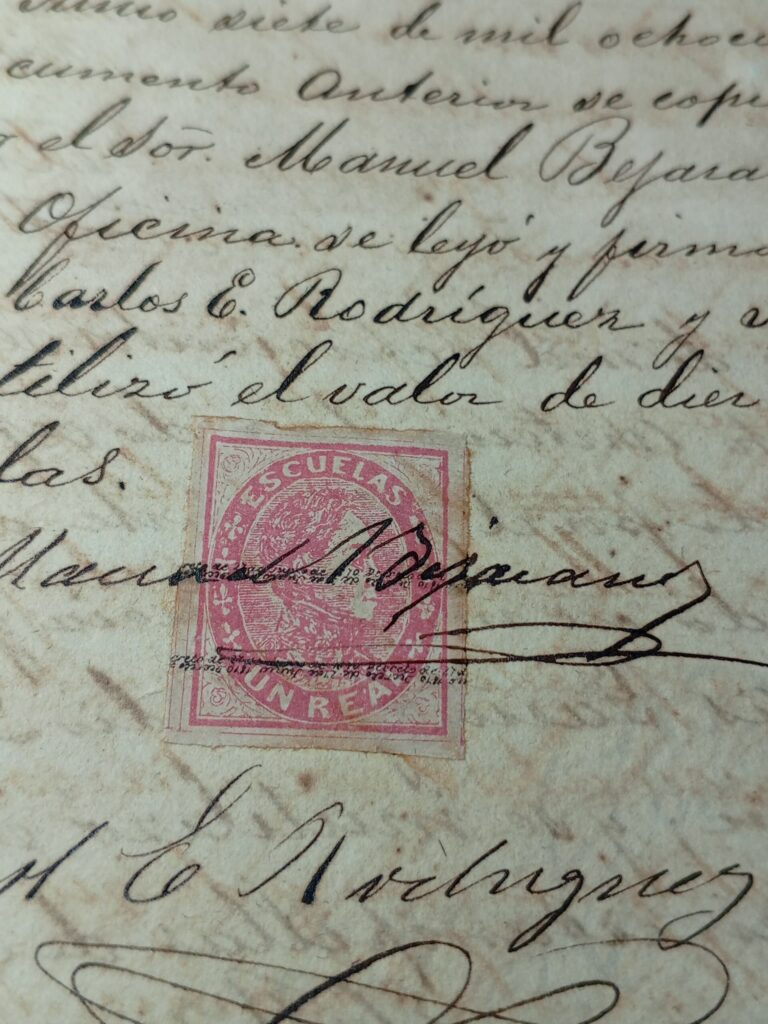 siete de mil ochoci
cumento Anterior se copi
el Sor. Manuel Bejara
Oficina se leyó y firma
Carlos E. Rodríguez y
tilizó el valor de diez
las.
ESCUELAS
Manuel Bejarano
UN REAL
E Rodriguez